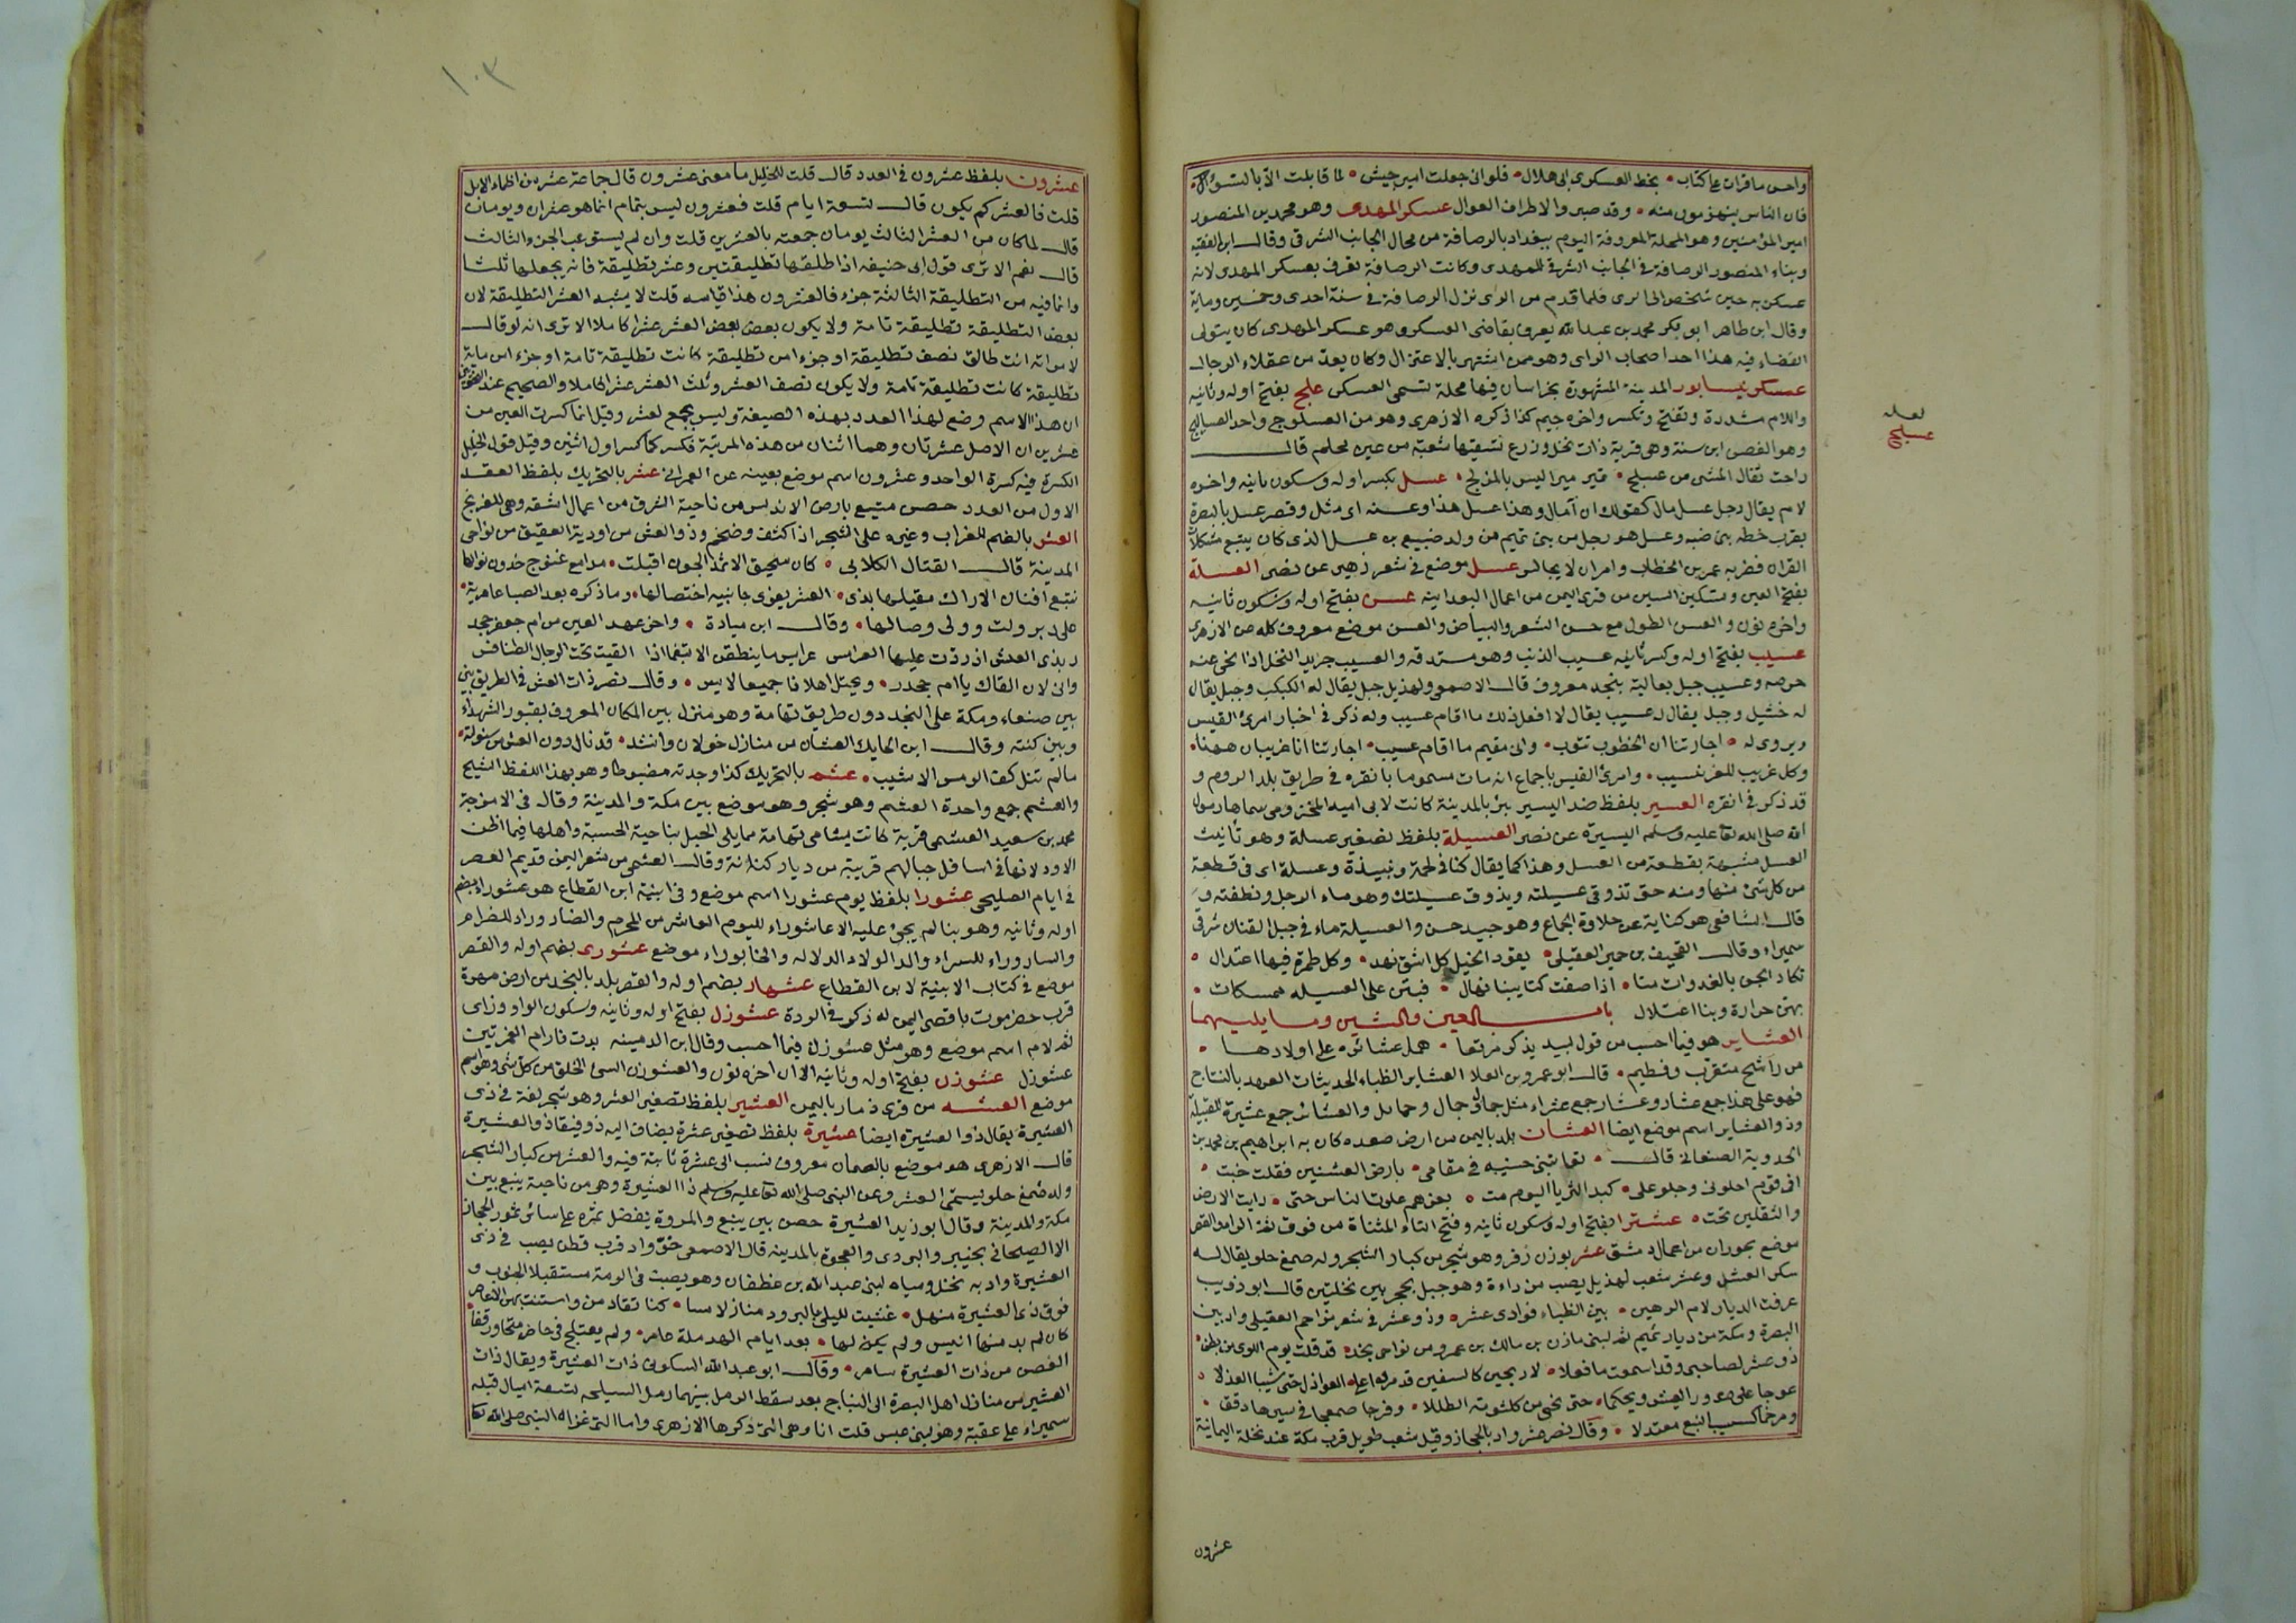 واحسن ما قرات على كتاب بخط العسكرى ابى هلال فلو انى جعلت امير جيش لما قابلت الا بالسؤال
فان الناس ينهزمون منه وقد صبروا لاطراف العوال عسكر المهدى وهو محمد بن المنصور
امير المؤمنين وهو المحلة المعروفة اليوم ببغداد بالرصافة من محال الجانب الشرقى وقال ابن الفقيه
وبناء المنصور الرصافة فى الجانب الشرقى للمهدى وكانت الرصافة تعرف بعسكر المهدى لانه
عسكر به حين شخص الى الرى فلما قدم من الرى نزل الرصافة فى سنة احدى وخمسين وماية
وقال ابن طاهر ابو بكر محمد بن عبد الله يعرف بقاضى العسكر وهو عسكر المهدى كان يتولى
القضاء فيه هذا احد اصحاب الراى وهو ممن اشتهر بالاعتزال وكان يعد من عقلاء الرجال
عسكر نيسابور المدينة المشهورة بخراسان فيها محلة تسمى العسكر علج بفتح اوله وثانيه
واللام مشددة وتفتح وتكسر واخره جيم كذا ذكره الازهرى وهو من العسلوج واحد العساليج
وهو الغصن ابن سنة وهى قرية ذات نخل وزرع تسقيها شعبة من عين محلم قال
راحت ثقال المشى من عسلج تمير ميرا ليس بالمزلج عسل بكسر اوله وسكون ثانيه واخره
لام يقال رجل عسل مال كقولك ان آمال وهذا عسل هذا وعسنه اى مثل وقصر عسل بالبصرة
بقرب خطة بنى ضبه وعسل هو رجل من بنى تميم من ولد ضبيع بن عسل الذى كان يتبع مشكلات
القران فضربه عمر بن الخطاب وامر ان لا يجالس عسل موضع فى شعر زهير عن نصر العسلة
بفتح العين وتسكين السين من قرى اليمن من اعمال البعدانيه عسن بفتح اوله وسكون ثانيه
واخره نون والعسن الطول مع حسن الشعر والبياض والعسن موضع معروف كله عن الازهرى
عسيب بفتح اوله وكسر ثانيه عسيب الذنب وهو مستدقه والعسيب جريد النخل اذا نحى عنه
خوصه وعسيب جبل بعالية نجد معروف قال الاصمعى ولهذيل جبل يقال له كبكب وجبل يقال
له خثيل وجبل يقال له عسيب يقال لا افعل ذلك ما اقام عسيب وله ذكر فى اخبار امرئ القيس
ويروى له اجارتنا ان الخطوب تنوب وانى مقيم ما اقام عسيب اجارتنا انا غريبان ههنا
وكل غريب للغريب نسيب وامرئ القيس باجماع انه مات مسموما بانقره فى طريق بلد الروم و
قد ذكر فى انقره العسير بلفظ ضد اليسير بئر بالمدينة كانت لابى اميه المخزومى سماها رسول
الله صلى الله تعا عليه وسلم اليسيرة عن نصر العسيلة بلفظ تصغير عسلة وهو تأنيث
العسل مشبهة بقطعة من العسل وهذا كما يقال كنا فى لحمة ونبيذة وعسلة اى فى قطعة
من كل شئ منها ومنه حتى تذوقى عسيلته ويذوق عسيلتك وهو ماء الرجل ونطفته و
قال الشافعى هو كناية عن حلاوة الجماع وهو جيد حسن والعسيلة ماء فى جبل القنان شرقى
سميراء وقال القحيف بن حمير العقيلى يقود الخيل كل اشق نهد وكل طمرة فيها اعتدال
تكاد الجن بالغدوات منا اذا صفت كتايبنا تهال فبتن على العسيله ممسكات
بهن حرارة وبنا اغتلال باب العين والشين وما يليهما
العشاير هو فيما احسب من قول لبيد يذكر مرتعا همل عشائره على اولادها
من راشح متقرب وفطيم قال ابو عمرو بن العلا العشاير الظباء الحديثات العهد بالنتاج
فهو على هذا جمع عشار وعشار جمع عشراء مثل جمال وجمائل والعشائر جمع عشيرة للقبيلة
وذو العشاير اسم موضع ايضا العشان بلد باليمن من ارض صعده كان به ابراهيم بن محمد بن
الحدوية الصنعانى قال تعاتبنى حنيبه فى مقامى بارض العشنين فقلت خبت
افى قوم احلونى وحلو على كبد الثريا اليوم مت بعزهم علوت الناس حتى رايت الارض
والثقلين تحت عشترا بفتح اوله وسكون ثانيه وفتح التاء المثناة من فوق ثم الراء والقصر
موضع بحوران من اعمال دمشق عشر بوزن زفر وهو شجر من كبار الشجر وله صمغ حلو يقال له
سكر العشر وعشر شعب لهذيل يصب من داءة وهو جبل يحجز بين نخلتين قال ابو ذويب
عرفت الديار لام الرهين بين الظباء فوادى عشر وذو عشر فى شعر مزاحم العقيلى واد بين
البصرة ومكة من ديار تميم ثم لبنى مازن بن مالك بن عمرو من نواحى نجد قد قلت يوم اللوى من بطن
ذى عشر لصاحبى وقد اسمعت ما فعلا لاريحيين كالسفين قد مرنوا على العواذل حتى شيبا العذلا
عوجا على صدور العيش ويحكما حتى نحيى من كلثومة الطللا وفرجا صمعجا فى سيرها دفق
ومرجما كسبيب النبع معتدلا وقال نصر عشر واد بالحجاز وقيل شعب طويل قرب مكة عند نخلة اليمانية
لعله
عسلج
عشرون
١٠٣
عشرون بلفظ عشرون فى العدد قال قلت للخليل ما معنى عشرون قال جماعة عشر من اظماء الابل
قلت فالعشر كم يكون قال تسعة ايام قلت فعشرون ليس بتمام انما هو عشران ويومان
قال لما كان من العشر الثالث يومان جمعته بالعشرين قلت وان لم يستوعب الجزء الثالث
قال نعم الا ترى قول ابى حنيفه اذا طلقها تطليقتين وعشر تطليقة فانه يجعلها ثلثا
وانما فيه من التطليقة الثالثة جزء فالعشرون هذا قياسه قلت لا يشبه العشر التطليقة لان
بعض التطليقة تطليقة تامة ولا يكون بعض بعض العشر عشرا كاملا الا ترى انه لو قال
لامراته انت طالق نصف تطليقة او جزءا من تطليقة كانت تطليقة تامة او جزءا من ماية
تطليقة كانت تطليقة تامة ولا يكون نصف العشر وثلث العشر عشرا كاملا والصحيح عند النحويين
ان هذا الاسم وضع لهذا العدد بهذه الصيغة وليس بجمع لعشر وقيل انما كسرت العين من
عشرين ان الاصل عشرتان وهما اثنان من هذه المرتبة فكسر كما كسر اول اثنين وقيل قول الخليل
الكسرة فيه كسرة الواحد وعشرون اسم موضع بعينه عن العمرانى عشر بالتحريك بلفظ العقد
الاول من العدد حصن منيع بارض الاندلس من ناحية الشرق من اعمال اشقه وهى للفرنج
العش بالضم للغراب وغيره على الشجر اذا كثف وضخم وذو العش من اودية العقيق من نواحى
المدينة قال القتال الكلابى كان سحيق الاثمد الجون اقبلت مدامع عنوج حدرن نوالها
تتبع افنان الاراك مقيلها بذى العش يعرى جانبيه اختصالها وما ذكره بعد الصبا عامرية
على دبر ولت وولى وصالها وقال ابن ميادة واخر عهد العين من ام جعفر جحدر
بذى العش اذ ردت عليها العرامس عرايس ما ينطقن الا تبغما اذا القيت تحت الرحال الطنافس
وانى لان القاك يا ام جحدر ويحتل اهلانا جميعا لايس وقال نصر ذات العش فى الطريق
بين صنعاء ومكة على النجد دون طريق تهامة وهو منزل بين المكان المعروف بقبور الشهداء
وبين كتنه وقال ابن الحايك العشان من منازل خولان وانشد قد نال دون العش من سنواته
مالم تنل كف الرمس الاشيب عشم بالتحريك كذا وجدته مضبوطا وهو بهذا اللفظ الشيخ
والعشم جمع واحدة العشم وهو شجر وهو موضع بين مكة والمدينة وقال فى الامزجة
محمد بن سعيد العشمى قرية كانت بشامى تهامة مما يلى الجبل بناحية الحسبة واهلها فيما اظن
الاود لانها فى اسافل جبالهم قريبة من ديار كنانة وقال العشمى من شعر اليمن قديم العصر
فى ايام الصليحى عشورا بلفظ يوم عشورا اسم موضع وفى ابنية ابن القطاع هو عشوراء بضم
اوله وثانيه وهو بنا لم يجئ عليه الا عاشوراء لليوم العاشر من المحرم والضاروراء للضراء
والساروراء للسراء والدالولاء الدلاله والخابوراء موضع عشورى بضم اوله والقصر
موضع فى كتاب الابنية لابن القطاع عشهار بضم اوله والقصر بلد بالنجد من ارض مهرة
قرب حضرموت باقصى اليمن له ذكر فى الردة عشوزل بفتح اوله وثانيه وسكون الواو وزاى
ثم لام اسم موضع وهو مثل عشوزن فيما احسب وقال ابن الدمينه بدت فارام العمريتين
عشوزل عشوزن بفتح اوله وثانيه الا ان اخره نون والعشوزن السئ الخلق من كل شئ وهو اسم
موضع العشه من قرى ذمار باليمن العشير بلفظ تصغير العشر وهو شجر لغة فى ذى
العشيرة يقال ذو العشيرة ايضا عشيرة بلفظ تصغير عشرة يضاف اليه ذو فيقال ذو العشيرة
قال الازهرى هو موضع بالصمان معروف نسب الى عشرة نابتة فيه والعشر من كبار الشجر
وله صمغ حلو يسمى العشر وعن النبى صلى الله تعا عليه وسلم ذا العشيرة وهى من ناحية ينبع بين
مكة والمدينة وقال ابو زيد العشيرة حصن بين ينبع والمروة يفضل تمره على سائر تمور الحجاز
الا الصيحانى بخيبر والبردى والعجوة بالمدينة قال الاصمعى خو واد قرب قطن يصب فى ذى
العشيرة واد به نخل ومياه لبنى عبد الله بن غطفان وهو يصب فى الرمة مستقبلا الجنوب و
فوق ذى العشيرة منهل غشيت لليلى بالبرود منازلا مسا كنا تقاد من واستنت بهن الاعاصر
كان لم يدمنها انيس ولم يكن لها بعد ايام الهدملة عامر ولم يعتلج فى حاضر متجاور قفا
الغصن من ذات العشيرة سامر وقال ابو عبد الله السكونى ذات العشيرة ويقال ذات
العشير من منازل اهل البصرة الى النباج بعد سقط الرمل بينهما رمل السيلحه تسعة اميال قبله
سميراء على عقبة وهو لبنى عبس قلت انا وهى التى ذكرها الازهرى واما التى غزاها النبى صلى الله تعا